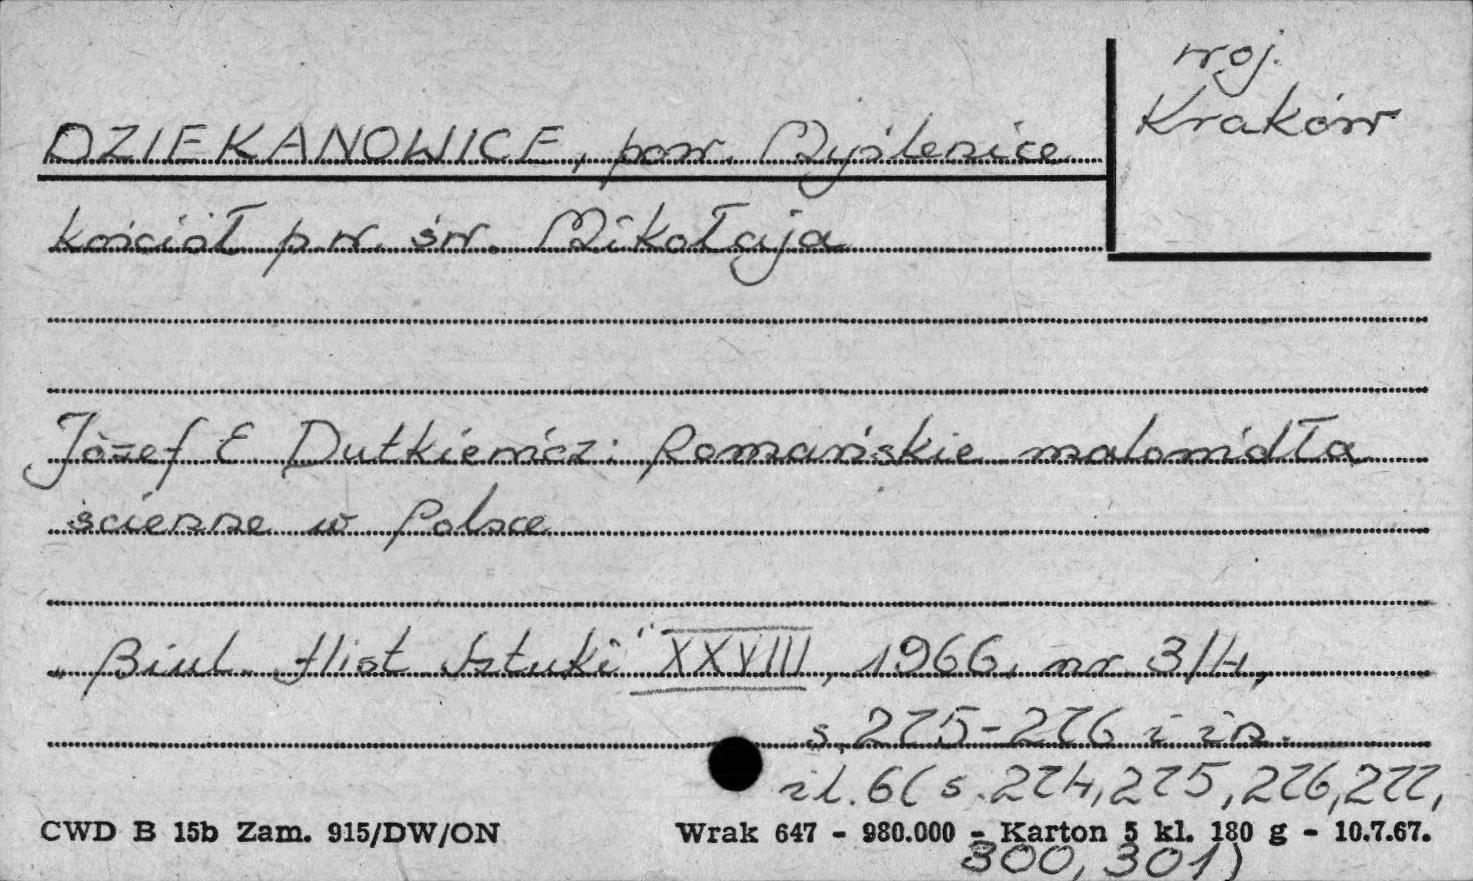 woj.
Kraków
DZIEKANOWICE, pow. Myślenice
kościół p.w. św. Mikołaja
Józef E Dutkiewicz: Romańskie malowidła
ścienne w Polsce
„Biul. Hist Sztuki" XXVIII, 1966, nr 3/4,
s. 275-276 i in.
il. 6 (s. 274, 275, 276, 277,
300, 301)
CWD B 15b Zam. 915/DW/ON
Wrak 647 - 980.000 - Karton 5 kl. 180 g - 10.7.67.